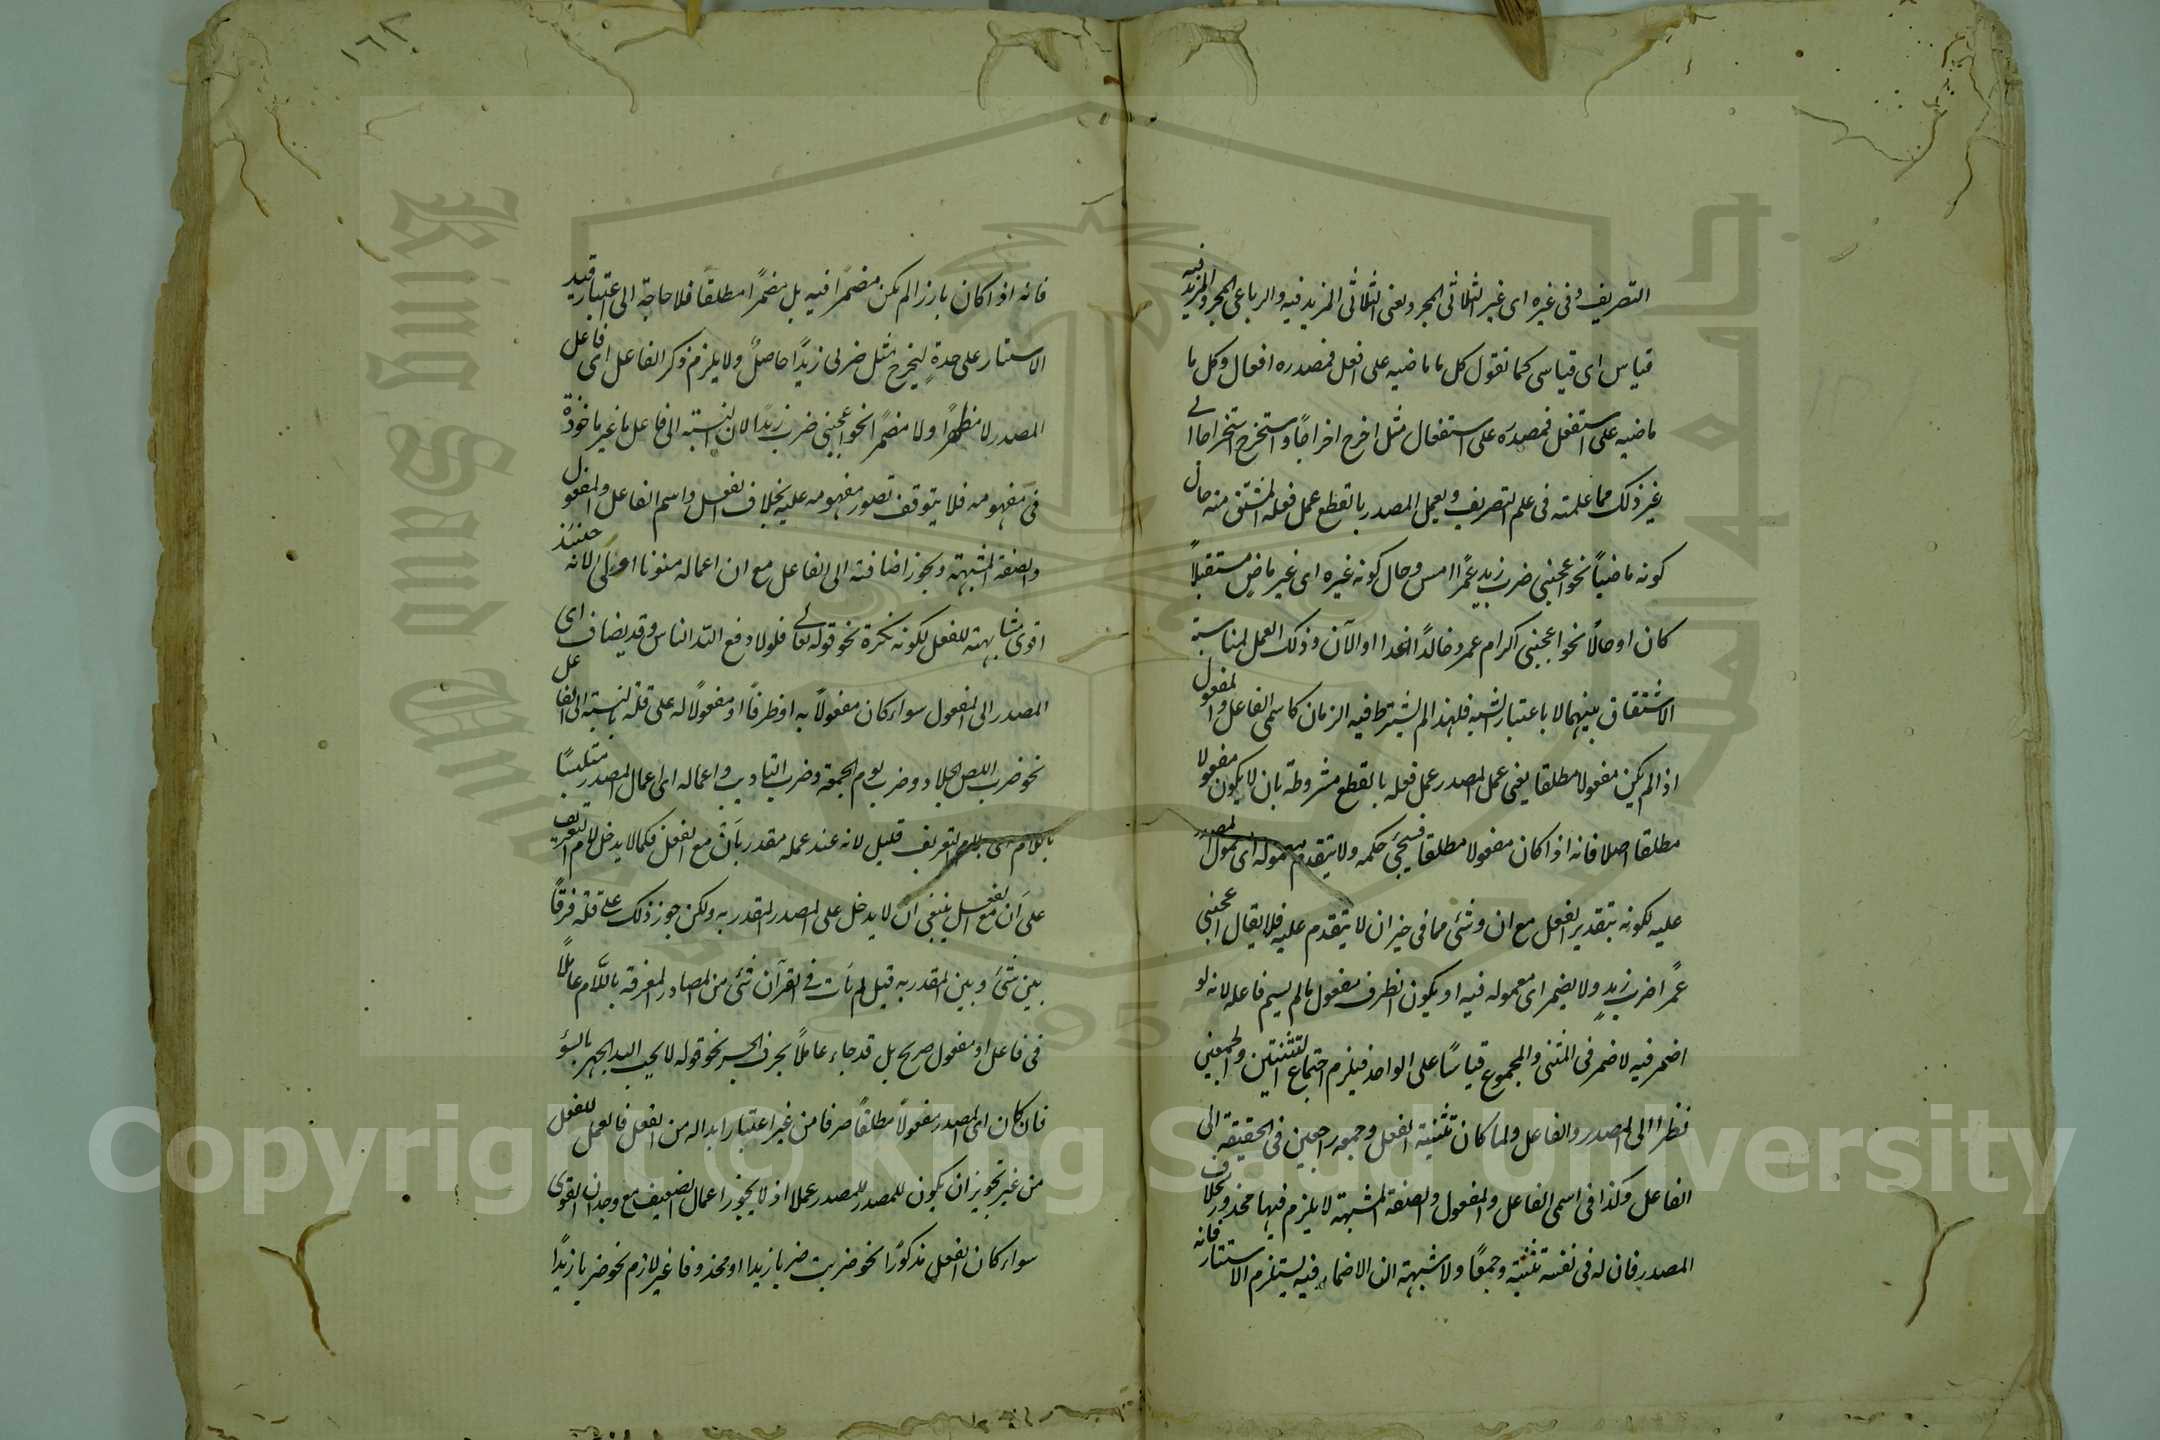 التصريف وفى غيره اى غير الثلاثى المجرد يعنى الثلاثى المزيد فيه والرباعى المجرد والمزيد فيه
قياس اى قياسى كما تقول كل ما ماضيه على افعل فمصدره افعال وكل ما
ماضيه على استفعل فمصدره على استفعال مثل اخرج اخراجًا واستخرج استخراجا الى
غير ذلك مما علمته فى علم التصريف ويعمل المصدر بالقطع عمل فعله المشتق منه حال
كونه ماضيًا نحو اعجبنى ضرب زيد عمرًا امس وحال كونه غيره اى غير ماض مستقبلاً
كان او حالاً نحو اعجبنى اكرام عمرو خالدًا غدا او الآن وذلك العمل لمناسبة
الاشتقاق بينهما لا باعتبار الشبه فلهذا لم يشترط فيه الزمان كاسمى الفاعل والمفعول
اذا لم يكن مفعولا مطلقا يعنى عمل المصدر عمل فعله بالقطع مشروطة بان لا يكون مفعولا
مطلقا اصلا فانه اذا كان مفعولا مطلقا فسيجئ حكمه ولا يتقدم معموله اى معمول المصدر
عليه لكونه بتقدير الفعل مع ان وشئ مما فى حيز ان لا يتقدم عليه فلا يقال اعجبنى
عمرًا ضرب زيدٍ ولا يضمر اى معموله فيه او يكون الظرف مفعول ما لم يسم فاعله لانه لو
اضمر فيه لاضمر فى المثنى والمجموع قياسًا على الواحد فيلزم اجتماع التثنيتين والجمعين
نظرا الى المصدر والفاعل ولما كان تثنية الفعل وجمعه راجعين فى الحقيقة الى
الفاعل وكذا فى اسمى الفاعل والمفعول والصفة المشبهة لا يلزم فيها محذور بخلاف
المصدر فان له فى نفسه تثنية وجمعًا ولا شبهة ان الاضمار فيه يستلزم الاستتار فانه
١٦٢
فانه اذا كان بارزا لم يكن مضمرًا فيه بل مضمرًا مطلقًا فلا حاجة الى اعتبار قيد
الاستتار على حدةٍ ليخرج مثل ضربى زيدًا حاصلٌ ولا يلزم ذكر الفاعل اى فاعل
المصدر لا مظهرًا ولا مضمرًا نحو اعجبنى ضرب زيدًا لان النسبة الى فاعل ما غير ماخوذة
فى مفهومه فلا يتوقف تصور مفهومه عليه بخلاف الفعل واسم الفاعل والمفعول
والصفة المشبهة ويجوز اضافته الى الفاعل مع ان اعماله منونا اولى لانه حينئذ
اقوى مشابهة للفعل لكونه نكرة نحو قوله تعالى فلولا دفع الله الناس وقد يضاف اى
المصدر الى المفعول سواء كان مفعولاً به او ظرفًا او مفعولاً له على قلة بالنسبة الى الفاعل
نحو ضرب اللص الجلاد وضرب يوم الجمعة وضرب التاديب واعماله اى اعمال المصدر متلبسًا
باللام اى بلام التعريف قليل لانه عند عمله مقدر بان مع الفعل فكما لا يدخل لام التعريف
على ان مع الفعل ينبغى ان لا يدخل على المصدر المقدر به ولكن جوز ذلك على قلة فرقًا
بين شئ وبين المقدر به قيل لم يات فى القرآن شئ من المصادر المعرفة باللام عاملًا
فى فاعل او مفعول صريح بل قد جاء عاملًا بحرف الجر نحو قوله لا يحب الله الجهر بالسوء
فان كان اى المصدر مفعولاً مطلقًا صرفا من غير اعتبار ابداله من الفعل فالعمل للفعل
من غير تجويز ان يكون للمصدر عملا اذ لا يجوز اعمال الضعيف مع وجدان القوى
سواء كان الفعل مذكورًا نحو ضربت ضربا زيدا او محذوفا غير لازم نحو ضربا زيدًا
King Saud University
1957
Copyright © King Saud University